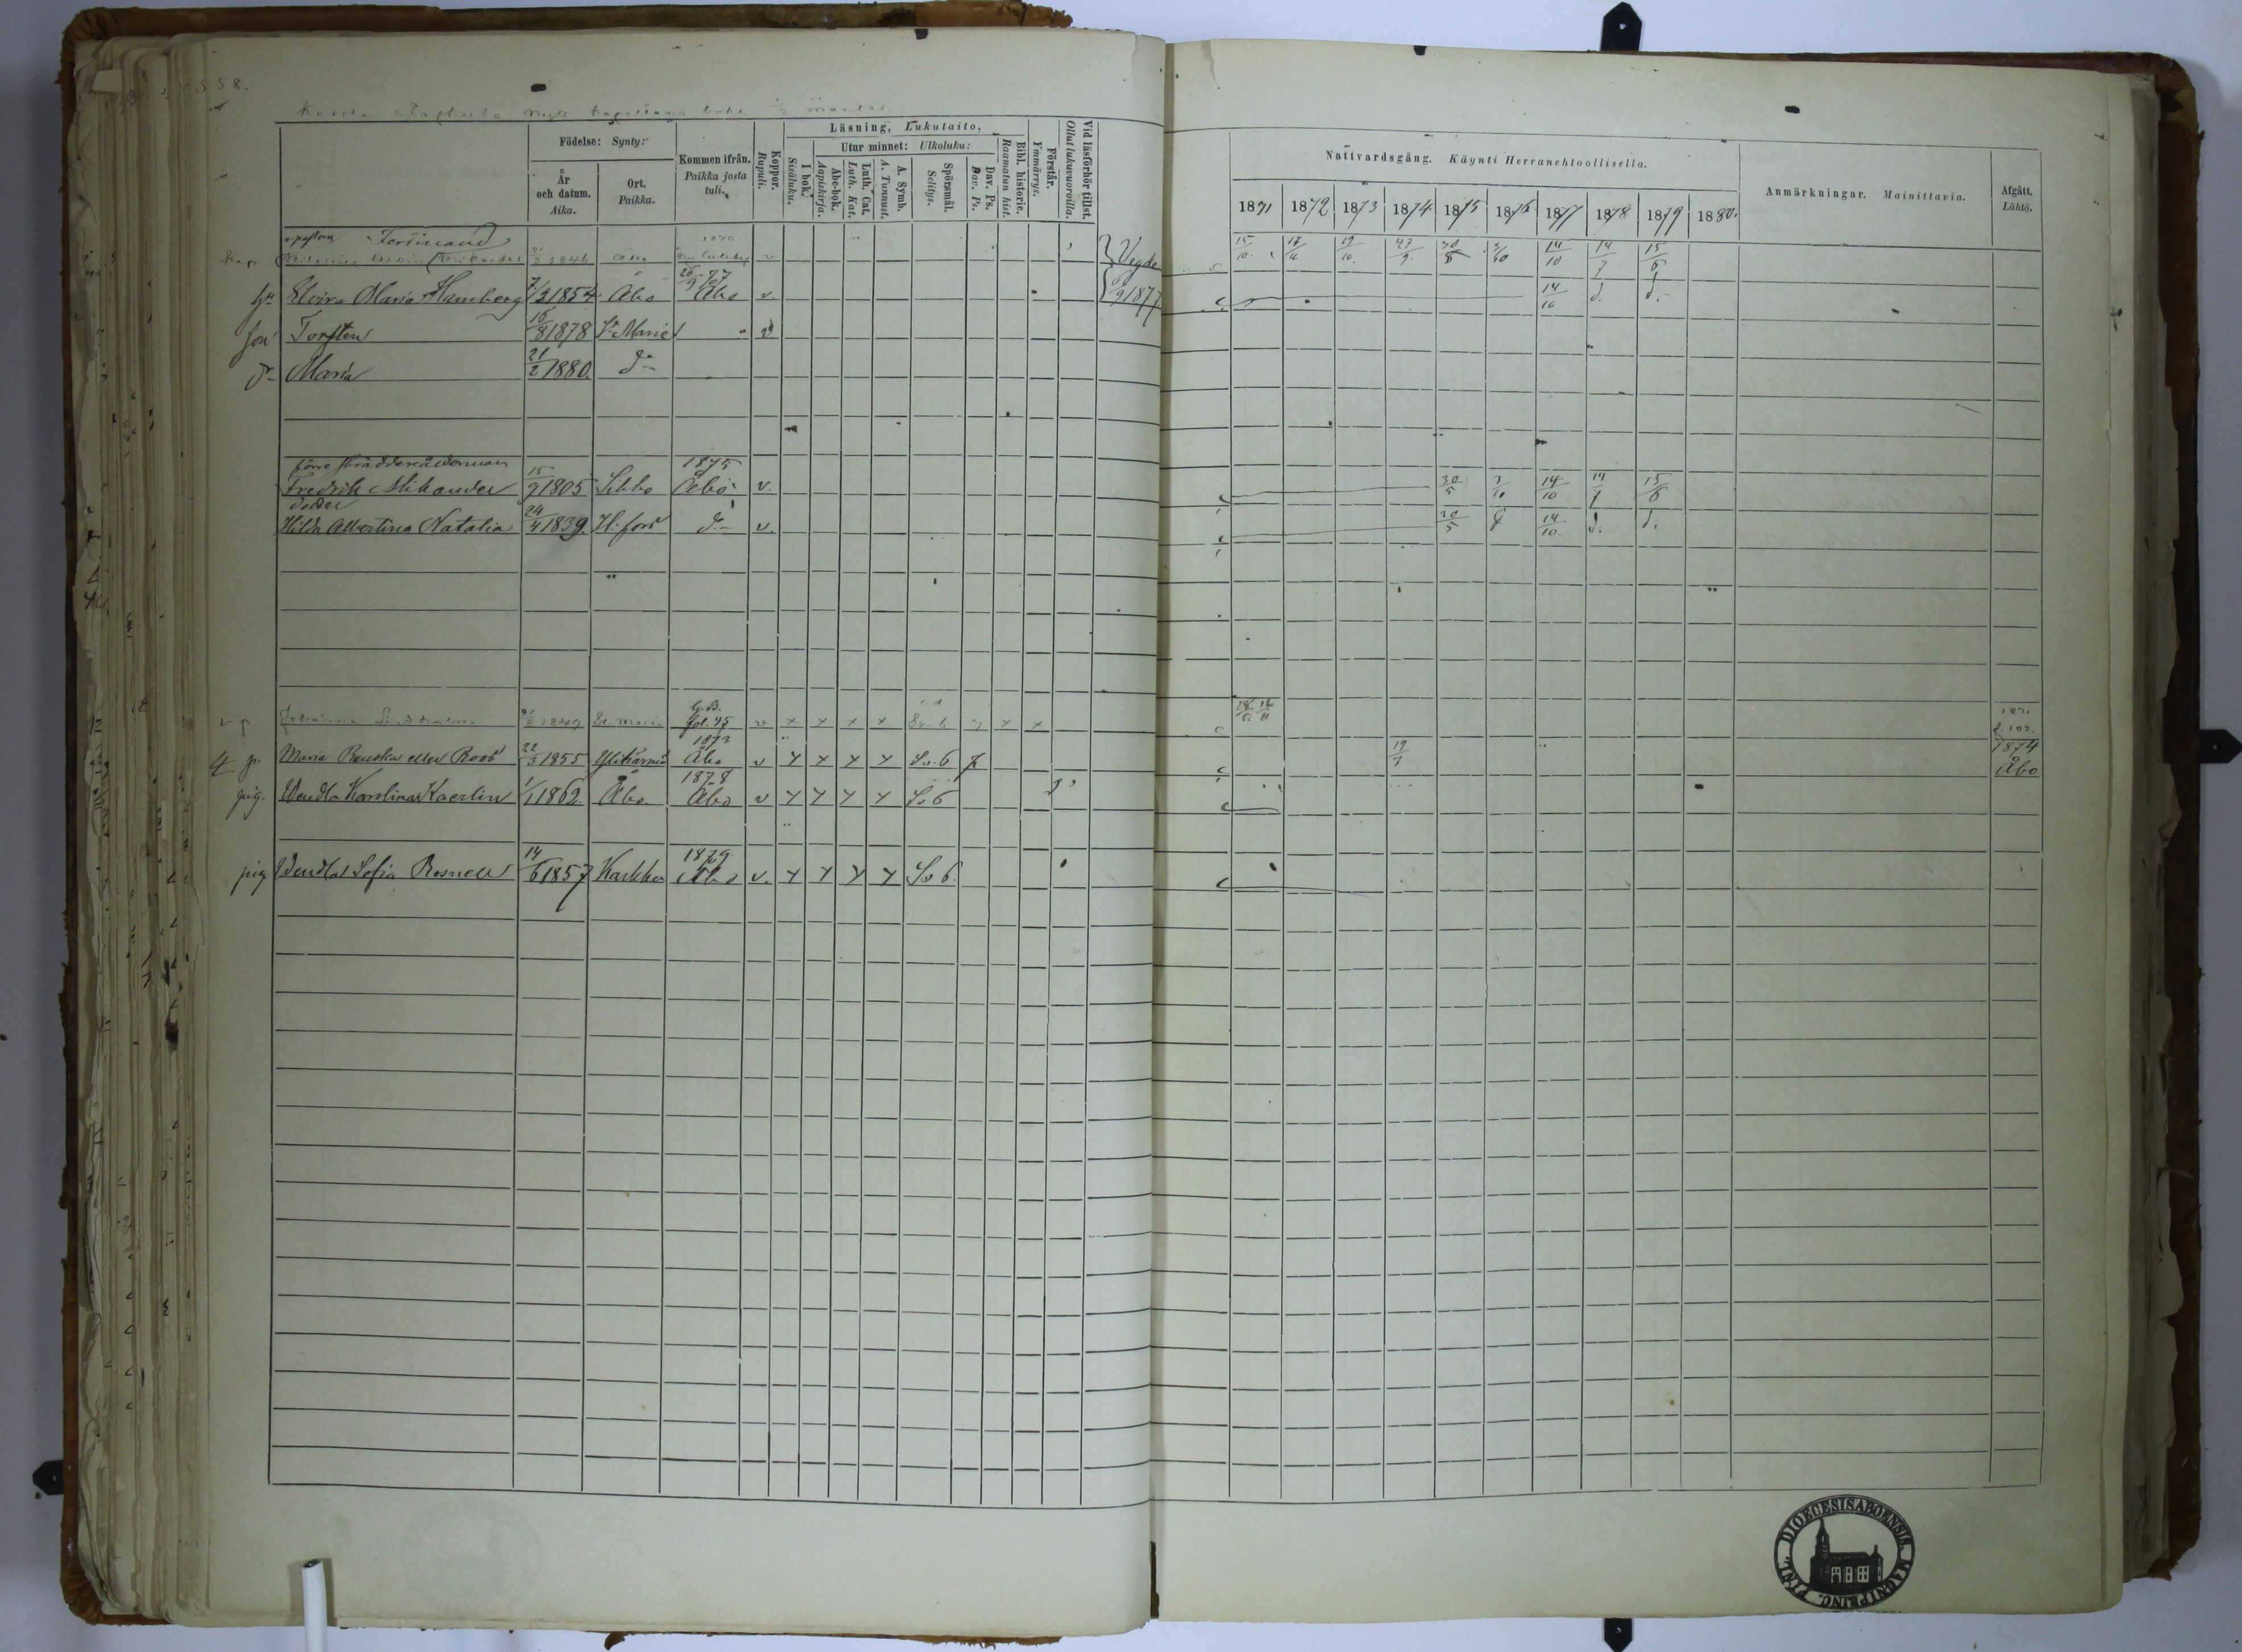 558.
Födelse: Synty:
År och datum. Aika.
Ort. Paikka.
Kommen ifrån. Paikka josta tuli.
Koppor. Rupuli.
Läsning, Lukutaito,
I bok. Sisäluku.
Utur minnet: Ulkoluku:
Abc-bok. Aapiskirja.
Luth. Cat. Luth. Kat.
A. Symb. A. Tunnust.
Spörsmål. Selitys.
Dav. Ps. Dav. Ps.
Bibl. historie. Raamatun hist.
Förstår. Ymmärrys.
Vid läsförhör tillst. Ollut lukuvuoroilla.
Nattvardsgång. Käynti Herranehtoollisella.
1871 1872 1873 1874 1875 1876 1877 1878 1879 1880.
Anmärkningar. Mainittavia.
Afgått. Lähtö.
v. pastorn Ferdinand 1870
Kap. 1846 Åbo v Vigde 15/10 19/10 14/10 14/7 15/6
Elvira Maria Hamberg 7/3 1854 Åbo 26/9 77 Åbo v. 6/9 1877 14/10 d. d.
son Torsten 16/8 1878 S:t Marie v
dr Maria 21/2 1880. do
förre skräddareåldermann 1875
Fredrik Mikander 15/9 1805 Sibbo Åbo v. 30/5 7/10 14/10 14/7 15/6
dotter
Hilda Albertina Natalia 24/4 1839. H:fors d:o v. 30/5 14/10. d. d.
G.B.
Johanna fol. 75 v x x x x Sv. 6 x x
1873 1874
p. Maria Rauska eller Roos 22/3 1855 Åbo v x x x x Sv. 6 19/1 Åbo
1878
pig. Wendla Karolina Kaerlin 1/1 1862. Åbo Åbo v x x x x Sv 6
1879
pig Wendla Sofia Rosnell 14/6 1857 Karkku Åbo v. x x x x Sv 6.
DIOECESIS ABOENSIS. MAGNI PRINC. FINL.